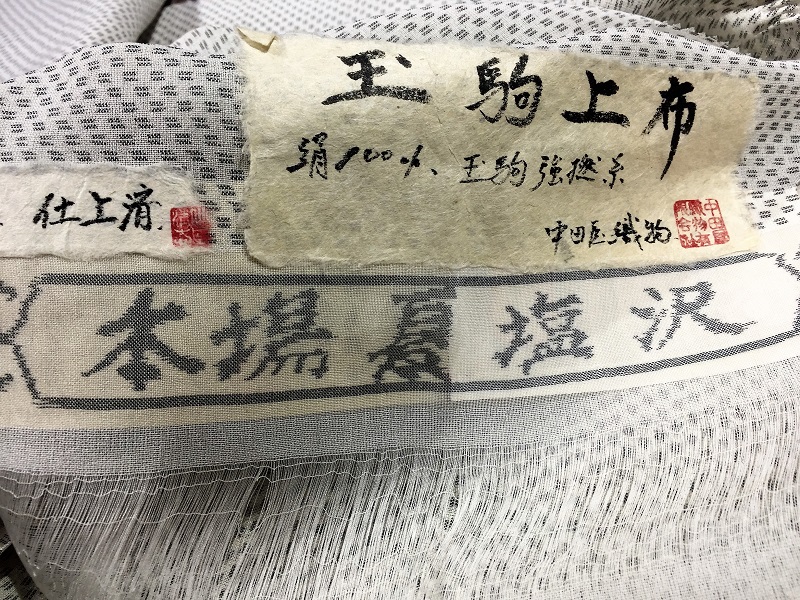 玉駒上布
絹100%、玉駒強撚糸
中田屋織物
仕上済
本場夏塩沢